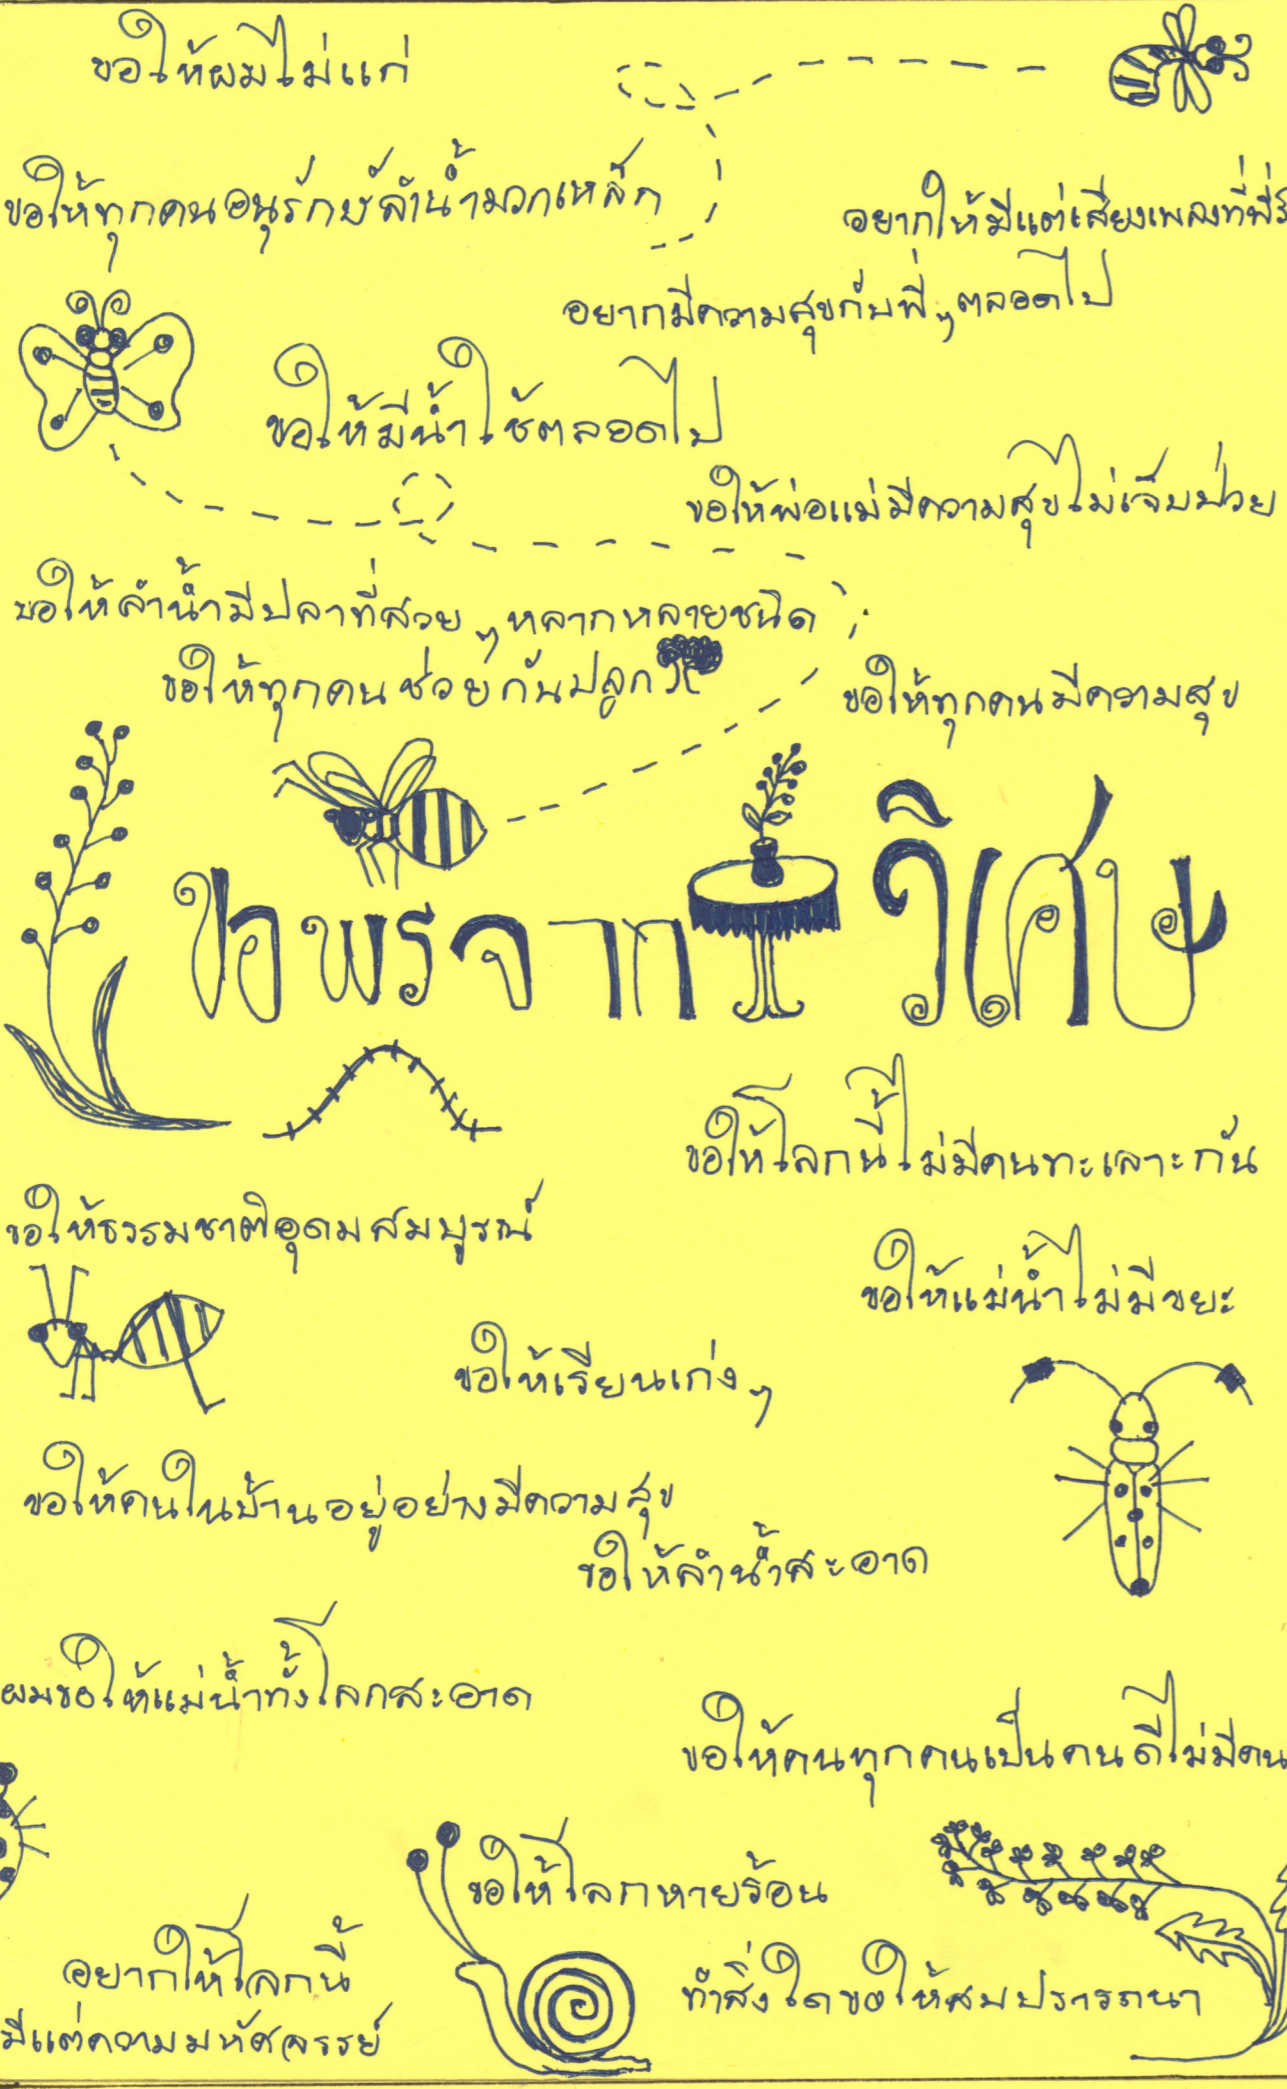 ขอให้ผมไม่แก่
ขอให้ทุกคนอนุรักษ์ลำน้ำมวกเหล็ก
อยากให้มีแต่เสียงเพลงที่
อยากมีความสุขกับพี่ๆตลอดไป
ขอให้มีน้ำใช้ตลอดไป
ขอให้พ่อแม่มีความสุขไม่เจ็บป่วย
ขอให้ลำน้ำมีปลาที่สวยๆหลากหลายชนิด
ขอให้ทุกคนช่วยกันปลูก
ขอให้ทุกคนมีความสุข
ขอพรจาก วิเศษ
ขอให้โลกนี้ไม่มีคนทะเลาะกัน
ขอให้ธรรมชาติอุดมสมบูรณ์
ขอให้แม่น้ำไม่มีขยะ
ขอให้เรียนเก่งๆ
ขอให้คนในบ้านอยู่อย่างมีความสุข
ขอให้ลำน้ำสะอาด
ผมขอให้แม่น้ำทั้งโลกสะอาด
ขอให้คนทุกคนเป็นคนดีไม่มีคน
ขอให้โลกหายร้อน
อยากให้โลกนี้
มีแต่ความมหัศจรรย์
ทำสิ่งใดขอให้สมปรารถนา